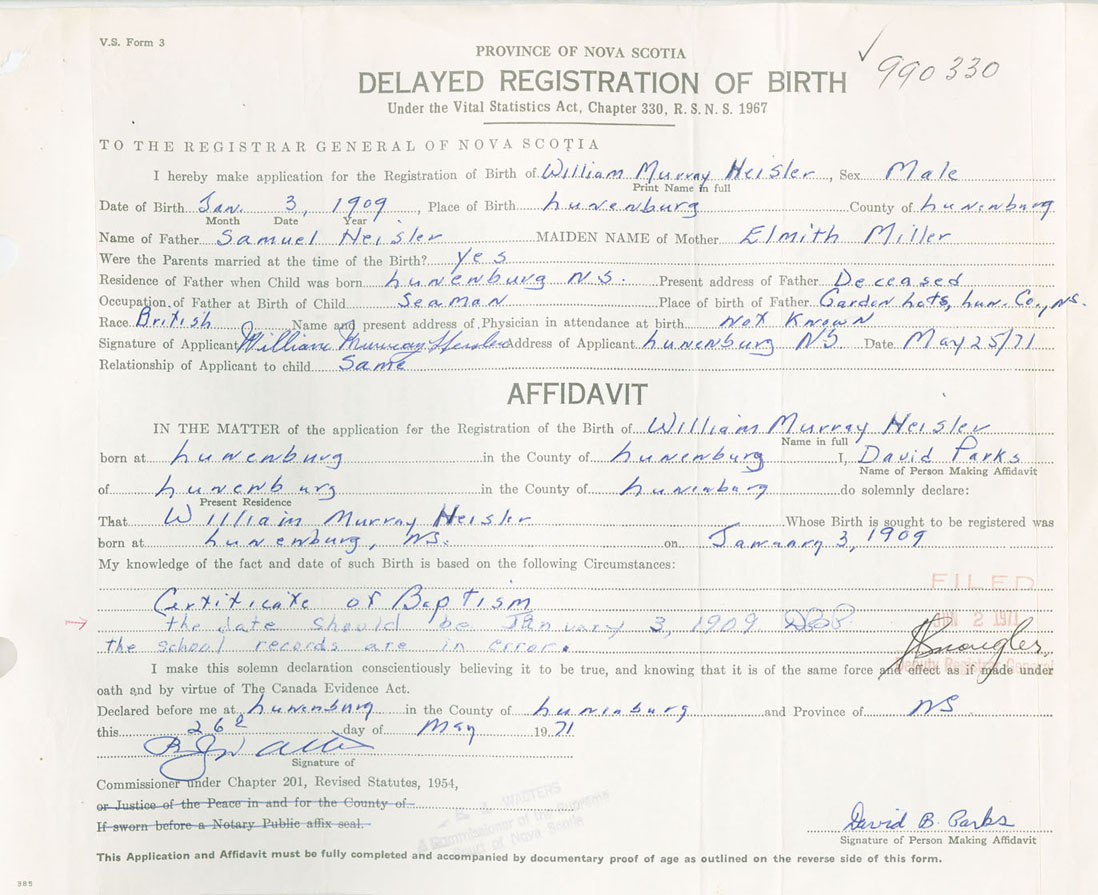 V.S. Form 3
PROVINCE OF NOVA SCOTIA
✓ 990330
DELAYED REGISTRATION OF BIRTH
Under the Vital Statistics Act, Chapter 330, R.S.N.S. 1967
TO THE REGISTRAR GENERAL OF NOVA SCOTIA
I hereby make application for the Registration of Birth of William Murray Heisler, Sex Male
Print Name in full
Date of Birth Jan. 3, 1909, Place of Birth Lunenburg County of Lunenburg
Month Date Year
Name of Father Samuel Heisler MAIDEN NAME of Mother Elmith Miller
Were the Parents married at the time of the Birth? yes
Residence of Father when Child was born Lunenburg NS. Present address of Father Deceased
Occupation of Father at Birth of Child Seaman Place of birth of Father Garden Lots, Lun. Co., NS.
Race British Name and present address of Physician in attendance at birth Not Known
Signature of Applicant William Murray Heisler Address of Applicant Lunenburg NS. Date May 25/71
Relationship of Applicant to child Same
AFFIDAVIT
IN THE MATTER of the application for the Registration of the Birth of William Murray Heisler
Name in full
born at Lunenburg in the County of Lunenburg I, David Parks
Name of Person Making Affidavit
of Lunenburg in the County of Luninburg do solemnly declare:
Present Residence
That William Murray Heisler Whose Birth is sought to be registered was
born at Lunenburg, NS. on January 3, 1909
My knowledge of the fact and date of such Birth is based on the following Circumstances:
FILED
Certificate of Baptism
→ the date should be January 3, 1909 DBP.
JUN 2 1971
the school records are in error.
Deputy Registrar General
I make this solemn declaration conscientiously believing it to be true, and knowing that it is of the same force and effect as if made under
oath and by virtue of The Canada Evidence Act.
Declared before me at Lunenburg in the County of Luninburg and Province of NS
this 26 day of May 1971
Signature of
Commissioner under Chapter 201, Revised Statutes, 1954,
or Justice of the Peace in and for the County of
If sworn before a Notary Public affix seal.
L. WALTERS
A Commissioner of the Supreme
Court of Nova Scotia
David B. Parks
Signature of Person Making Affidavit
This Application and Affidavit must be fully completed and accompanied by documentary proof of age as outlined on the reverse side of this form.
385